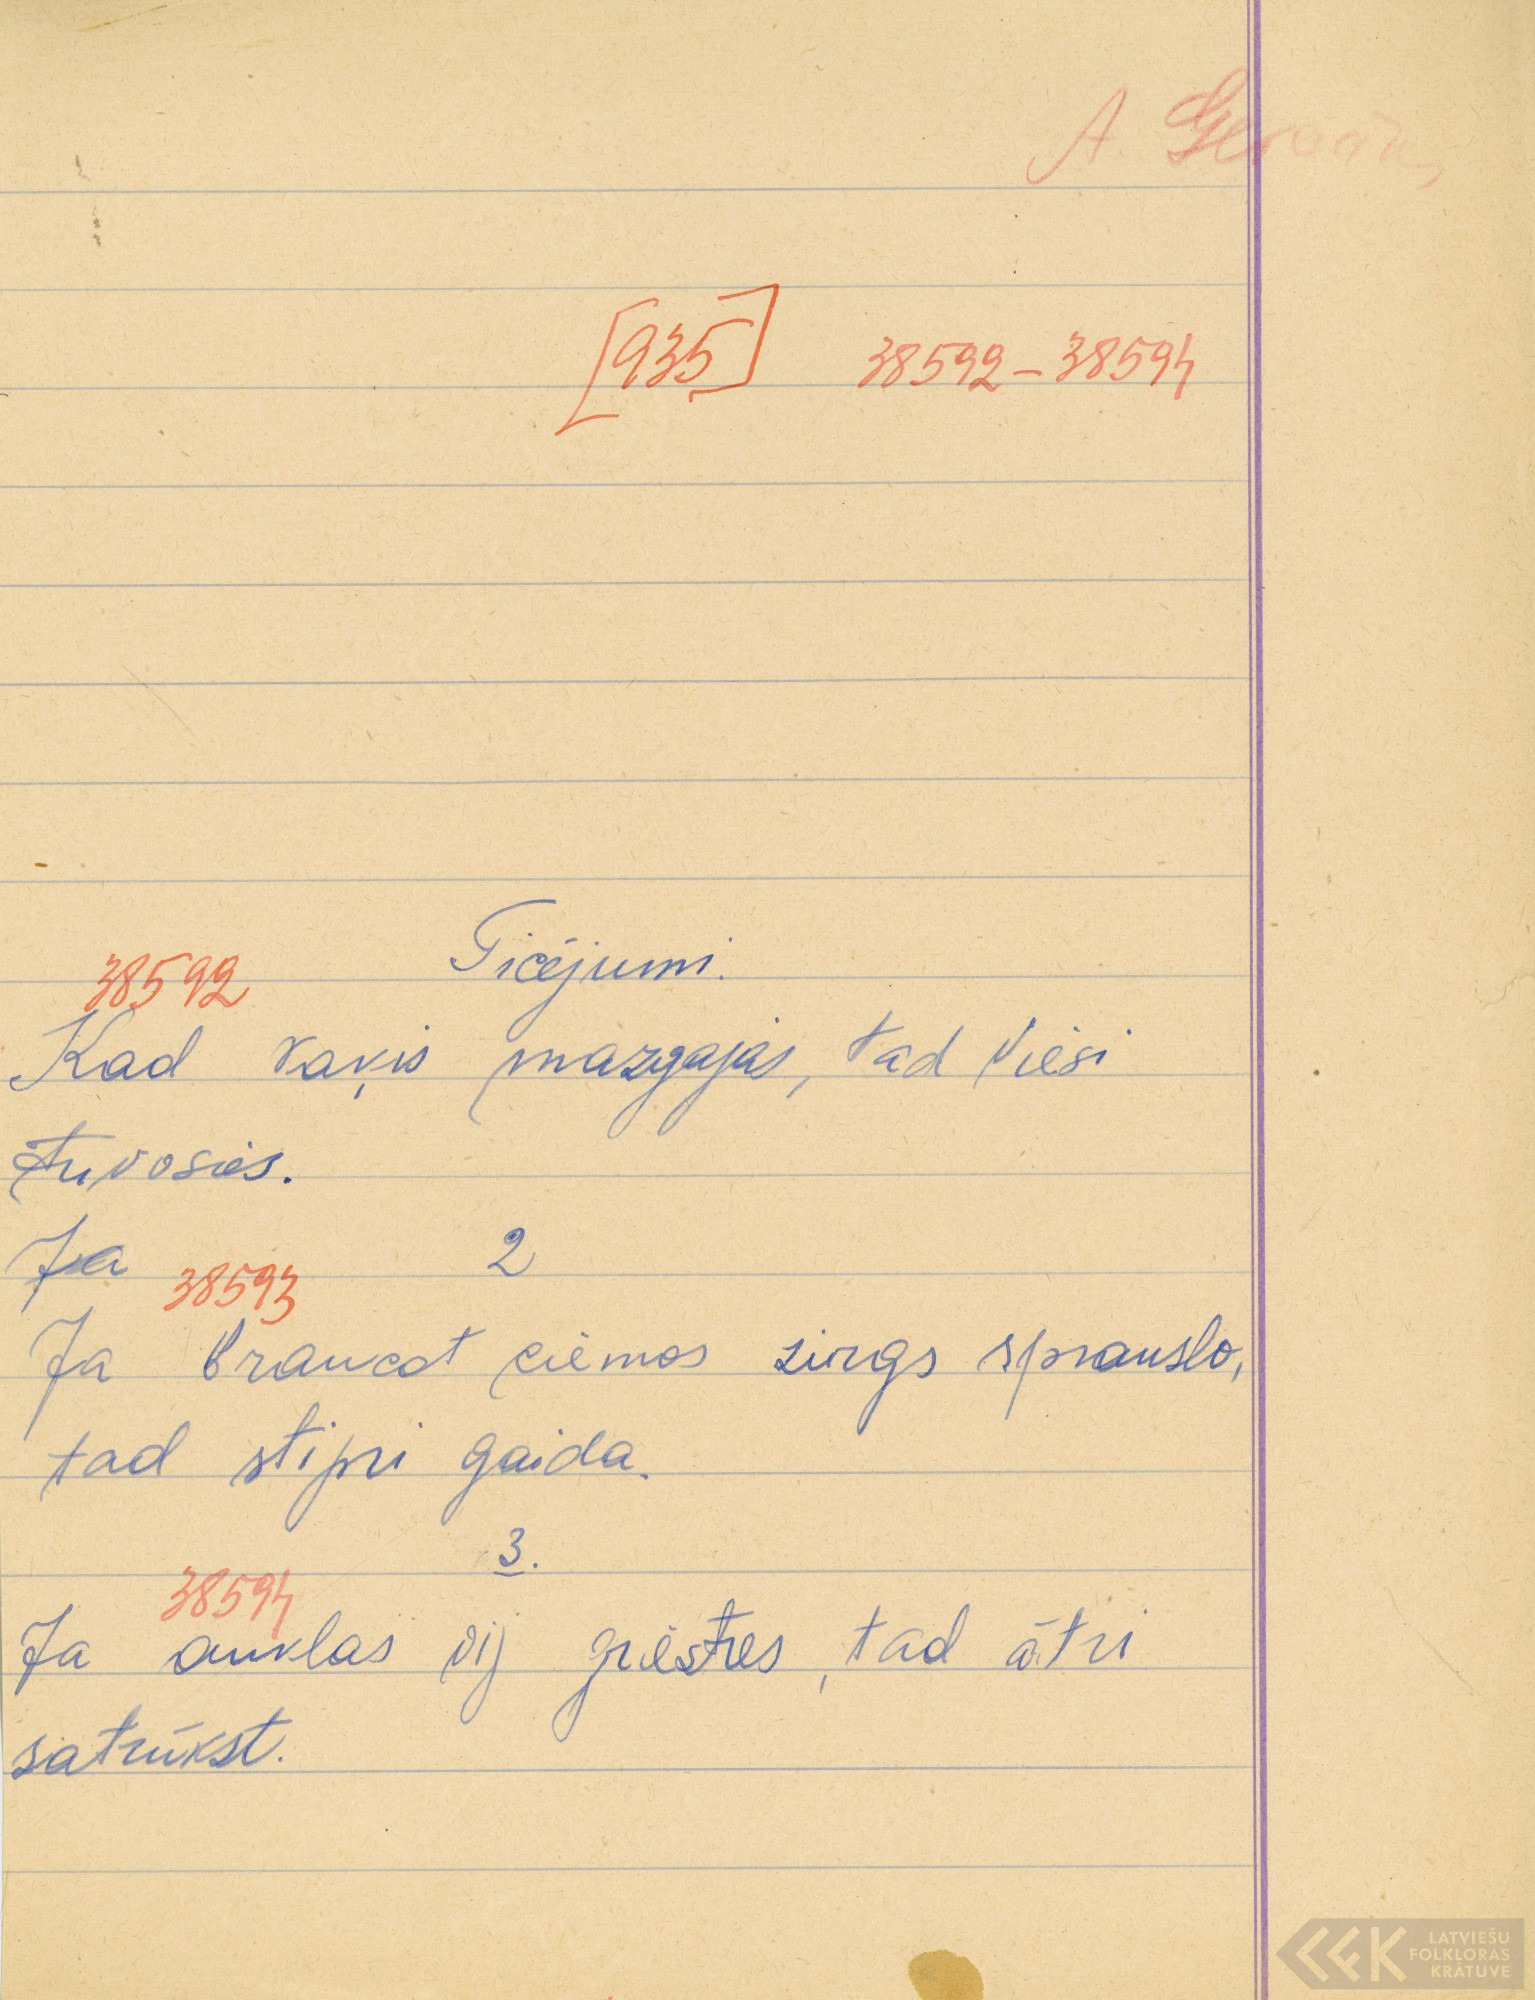 A.
[935] 38592-38594
Ticējumi.
38592
Kad kaķis mazgajas, tad viesi
tuvosies.
Ja 2
38593
Ja braucot ciemos zirgs sprauslo,
tad stipri gaida.
3.
38594
Ja auklas vij griestes, tad ātri
satrūkst.
LATVIEŠU
FOLKLORAS
KRĀTUVE